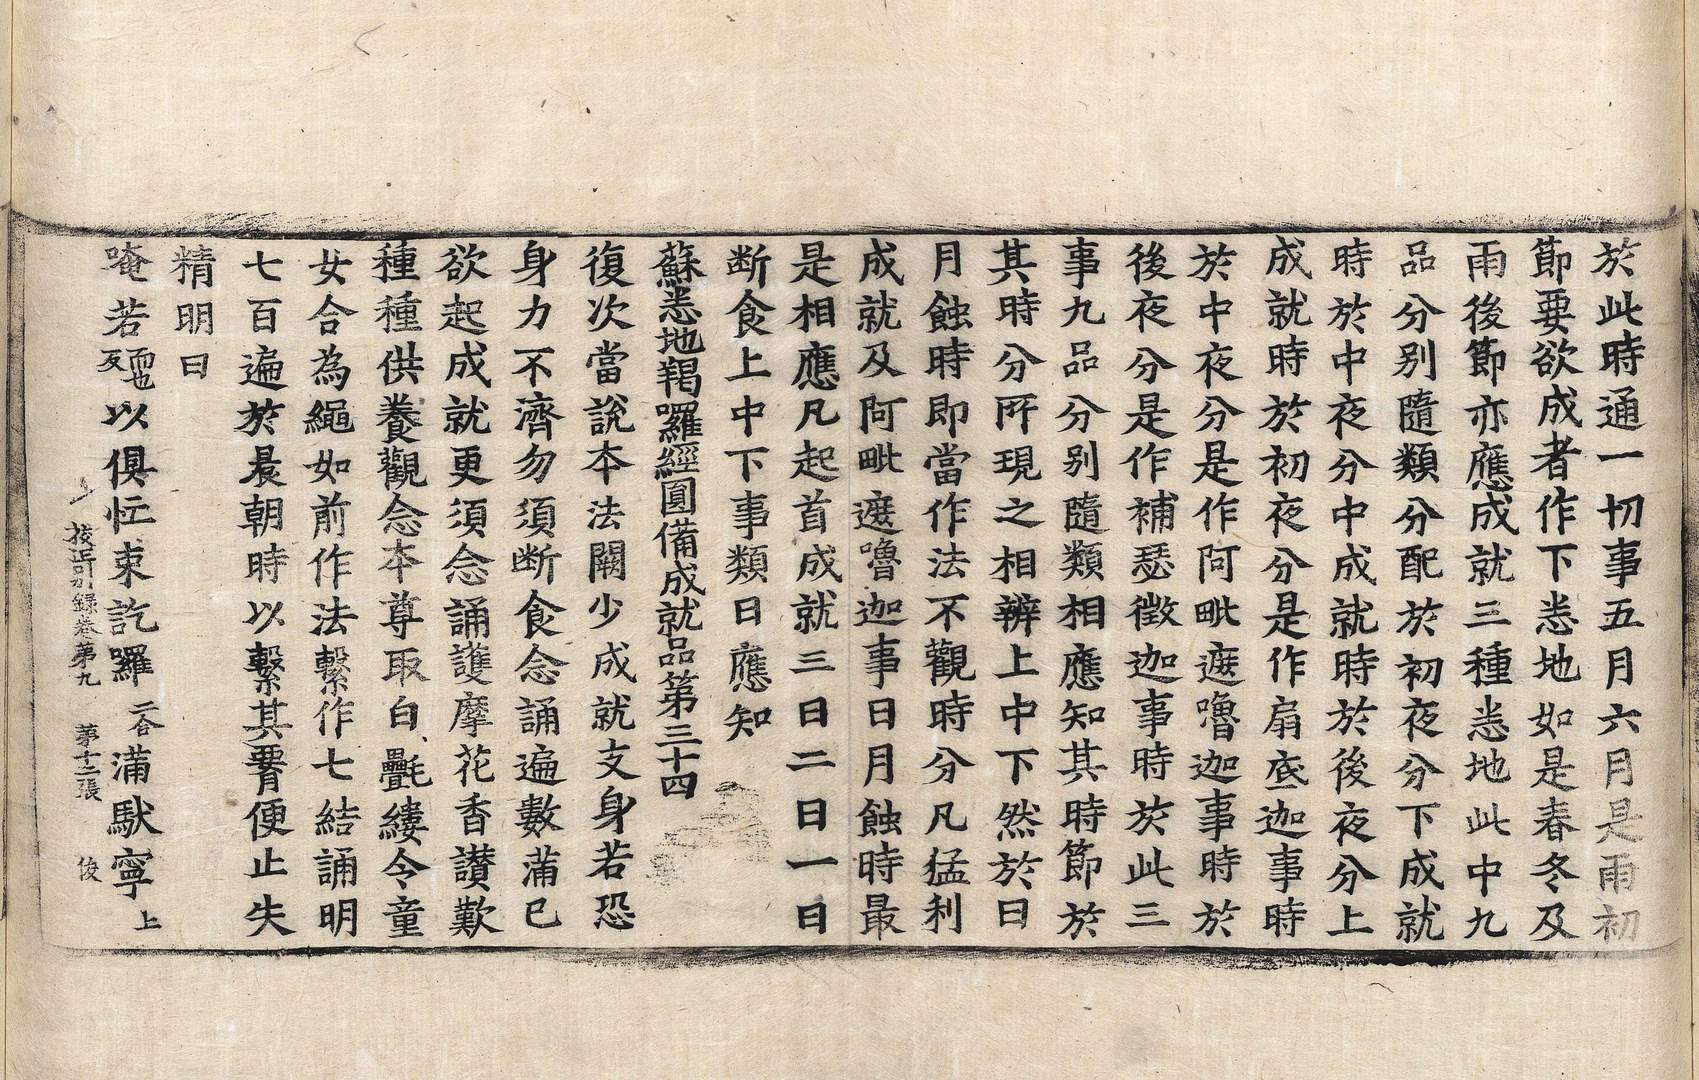 於此時通一切事五月六月是雨初
節要欲成者作下悉地如是春冬及
雨後節亦應成就三種悉地此中九
品分別隨類分配於初夜分下成就
時於中夜分中成就時於後夜分上
成就時於初夜分是作扇底迦事時
於中夜分是作阿毗遮嚕迦事時於
後夜分是作補瑟徵迦事時於此三
事九品分別隨類相應知其時節於
其時分所現之相辨上中下然於日
月蝕時即當作法不觀時分凡猛利
成就及阿毗遮嚕迦事日月蝕時最
是相應凡起首成就三日二日一日
断食上中下事類日應知
蘇悉地羯囉經圓備成就品第三十四
復次當說本法闕少成就支身若恐
身力不濟勿須断食念誦遍數蒲已
欲起成就更須念誦護摩花香讃歎
種種供養觀念本尊取白㲲縷令童
女合為繩如前作法繫作七結誦明
七百遍於晨朝時以繫其𦝫便止失
精明曰
唵若而也反以俱忹束訖囉二合滿馱寧上
開別録卷第九 第十二張 俊